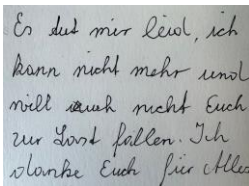 Es tut mir leid, ich
kann nicht mehr und
will auch nicht Euch
zur Last fallen. Ich
danke Euch für Alles